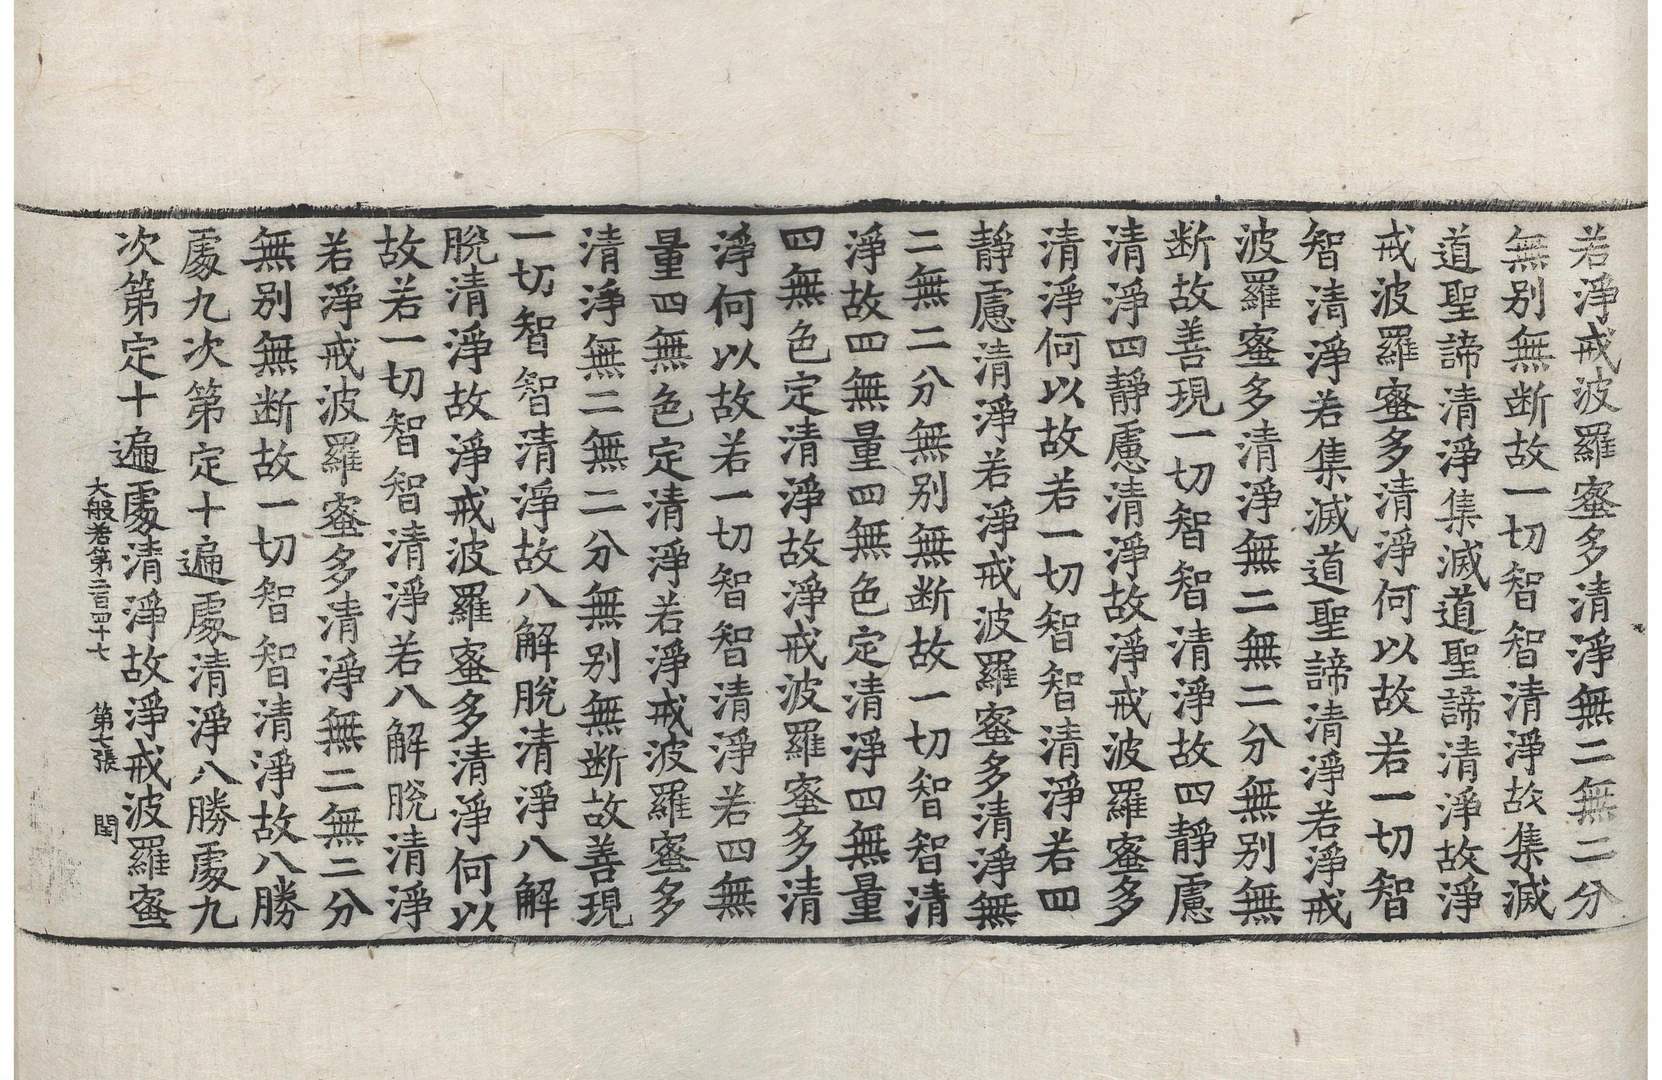 若淨戒波羅蜜多清淨無二無二分
無别無断故一切智智清淨故集滅
道聖諦清淨集滅道聖諦清淨故淨
戒波羅蜜多清淨何以故若一切智
智清淨若集滅道聖諦清淨若淨戒
波羅蜜多清淨無二無二分無别無
断故善現一切智智清淨故四靜慮
清淨四靜慮清淨故淨戒波羅蜜多
清淨何以故若一切智智清淨若四
靜慮清淨若淨戒波羅蜜多清淨無
二無二分無别無断故一切智智清
淨故四無量四無色定清淨四無量
四無色定清淨故淨戒波羅蜜多清
淨何以故若一切智智清淨若四無
量四無色定清淨若淨戒波羅蜜多
清淨無二無二分無别無断故善現
一切智智清淨故八解脫清淨八解
脫清淨故淨戒波羅蜜多清淨何以
故若一切智智清淨若八解脫清淨
若淨戒波羅蜜多清淨無二無二分
無别無断故一切智智清淨故八勝
處九次第定十遍處清淨八勝處九
次第定十遍處清淨故淨戒波羅蜜
大般若第二百四十七 第七張 閏